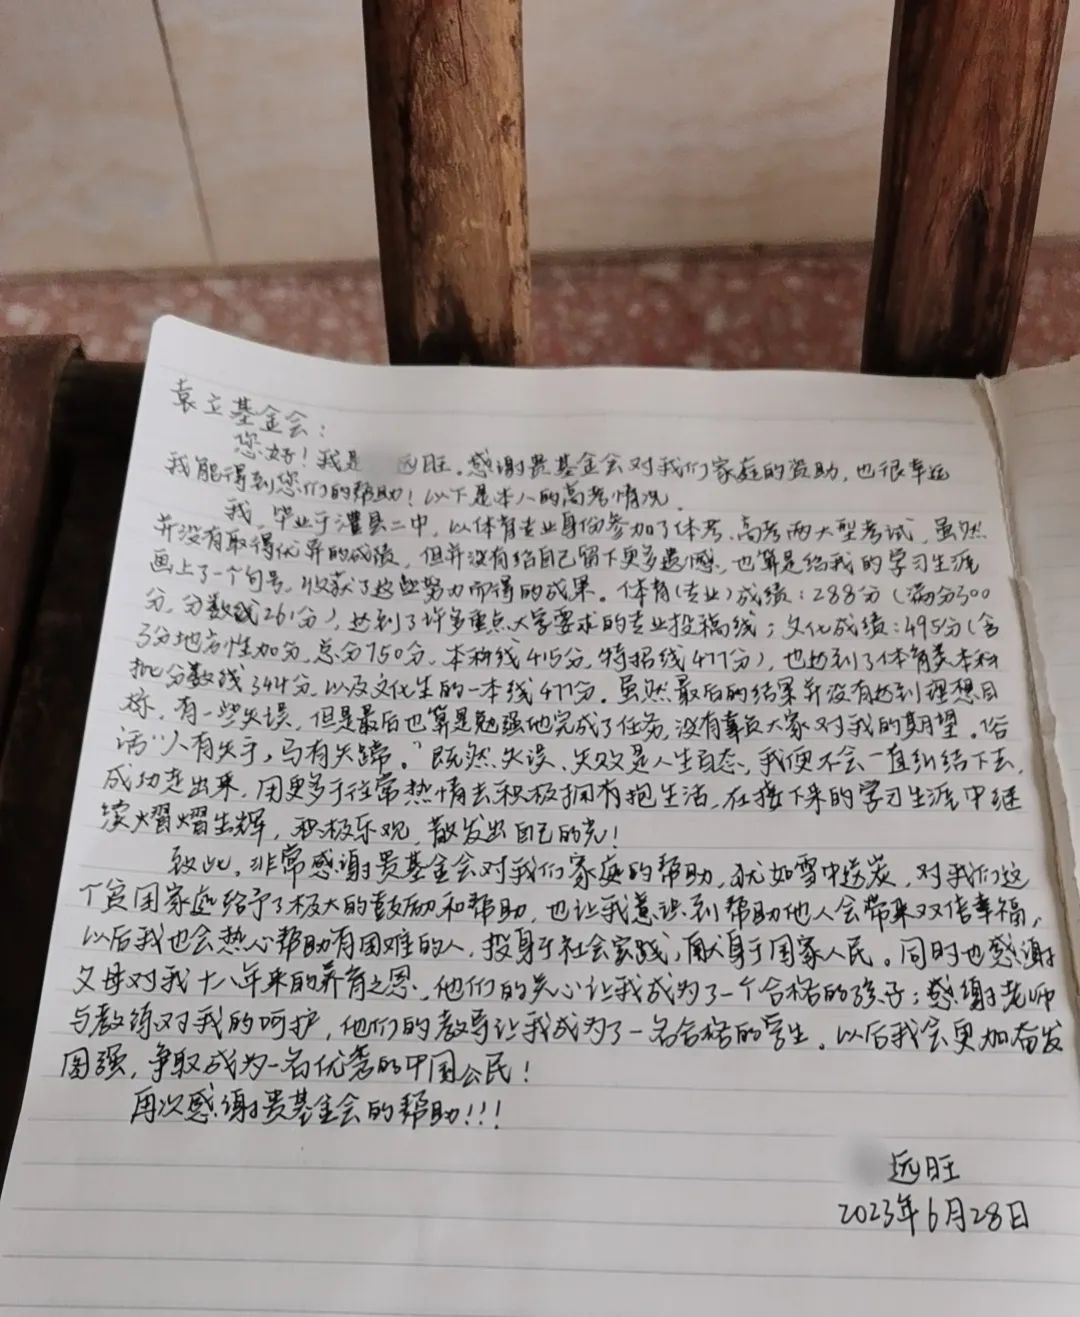 袁立基金会：
您好！我是 远旺。感谢贵基金会对我们家庭的资助，也很幸运
我能得到您们的帮助！以下是本人的高考情况。
我，毕业于澧县二中，以体育专业身份参加了体考、高考两大型考试，虽然
并没有取得优异的成绩，但并没有给自己留下更多遗憾，也算是给我的学习生涯
画上了一个句号，收获了这些努力而得的成果。体育(专业)成绩：288分（满分300
分，分数线261分），达到了许多重点大学要求的专业投稿线；文化成绩：495分（含
5分地方性加分，总分750分，本科线415分，特招线477分），也达到了体育类本科
批分数线344分，以及文化生的一本线477分。虽然最后的结果并没有达到理想目
标，有一些失误，但是最后也算是勉强地完成了任务，没有辜负大家对我的期望。俗
话“人有失手，马有失蹄。”既然失误、失败是人生百态，我便不会一直纠结下去，
成功走出来，用更多于往常热情去积极拥有抱生活，在接下来的学习生涯中继
续熠熠生辉，积极乐观，散发出自己的光！
致此，非常感谢贵基金会对我们家庭的帮助，犹如雪中送炭，对我们这
个贫困家庭给予了极大的鼓励和帮助，也让我意识到帮助他人会带来双倍幸福，
以后我也会热心帮助有困难的人，投身于社会实践，献身于国家人民。同时也感谢
父母对我十八年来的养育之恩，他们的关心让我成为了一个合格的孩子；感谢老师
与教练对我的呵护，他们的教导让我成为了一名合格的学生。以后我会更加奋发
图强，争取成为一名优秀的中国公民！
再次感谢贵基金会的帮助！！！
远旺
2023年6月28日